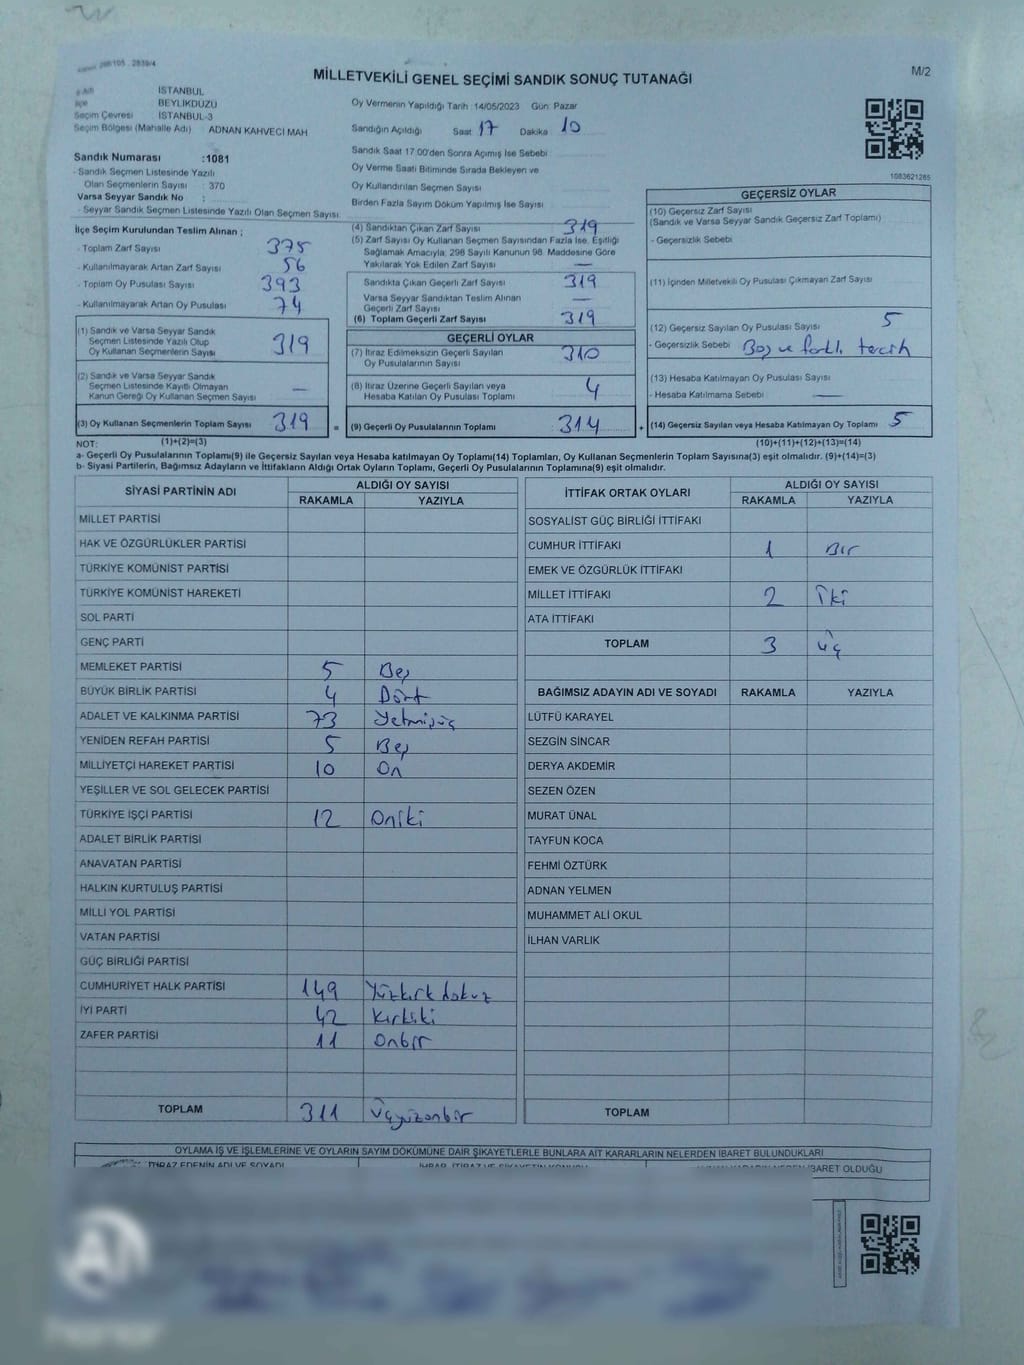 MİLLETVEKİLİ GENEL SEÇİMİ SANDIK SONUÇ TUTANAĞI
M/2
İSTANBUL
BEYLİKDÜZÜ
Seçim Çevresi İSTANBUL-3
Seçim Bölgesi (Mahalle Adı) ADNAN KAHVECİ MAH
Oy Vermenin Yapıldığı Tarih :14/05/2023 Gün: Pazar
Sandığın Açıldığı Saat 17 Dakika 10
Sandık Saat 17:00'den Sonra Açımış İse Sebebi
Oy Verme Saati Bitiminde Sırada Bekleyen ve
Oy Kullandırılan Seçmen Sayısı
Birden Fazla Sayım Döküm Yapılmış İse Sayısı
1083621265
Sandık Numarası :1081
- Sandık Seçmen Listesinde Yazılı
Olan Seçmenlerin Sayısı : 370
Varsa Seyyar Sandık No :
- Seyyar Sandık Seçmen Listesinde Yazılı Olan Seçmen Sayısı:
İlçe Seçim Kurulundan Teslim Alınan ;
- Toplam Zarf Sayısı 375
- Kullanılmayarak Artan Zarf Sayısı 56
- Toplam Oy Pusulası Sayısı 393
- Kullanılmayarak Artan Oy Pusulası 74
(1) Sandık ve Varsa Seyyar Sandık
Seçmen Listesinde Yazılı Olup
Oy Kullanan Seçmenlerin Sayısı 319
(2) Sandık ve Varsa Seyyar Sandık
Seçmen Listesinde Kayıtlı Olmayan
Kanun Gereği Oy Kullanan Seçmen Sayısı —
(3) Oy Kullanan Seçmenlerin Toplam Sayısı 319
(1)+(2)=(3)
(4) Sandıktan Çıkan Zarf Sayısı 319
(5) Zarf Sayısı Oy Kullanan Seçmen Sayısından Fazla İse, Eşitliği
Sağlamak Amacıyla; 298 Sayılı Kanunun 98. Maddesine Göre
Yakılarak Yok Edilen Zarf Sayısı —
Sandıkta Çıkan Geçerli Zarf Sayısı 319
Varsa Seyyar Sandıktan Teslim Alınan
Geçerli Zarf Sayısı —
(6) Toplam Geçerli Zarf Sayısı 319
GEÇERLİ OYLAR
(7) İtiraz Edilmeksizin Geçerli Sayılan
Oy Pusulalarının Sayısı 310
(8) İtiraz Üzerine Geçerli Sayılan veya
Hesaba Katılan Oy Pusulası Toplamı 4
= (9) Geçerli Oy Pusulalarının Toplamı 314
GEÇERSİZ OYLAR
(10) Geçersiz Zarf Sayısı
(Sandık ve Varsa Seyyar Sandık Geçersiz Zarf Toplamı)
- Geçersizlik Sebebi
(11) İçinden Milletvekili Oy Pusulası Çıkmayan Zarf Sayısı
(12) Geçersiz Sayılan Oy Pusulası Sayısı 5
- Geçersizlik Sebebi Boş ve farklı tercih
(13) Hesaba Katılmayan Oy Pusulası Sayısı
- Hesaba Katılmama Sebebi —
+ (14) Geçersiz Sayılan veya Hesaba Katılmayan Oy Toplamı 5
(10)+(11)+(12)+(13)=(14)
NOT:
a- Geçerli Oy Pusulalarının Toplamı(9) ile Geçersiz Sayılan veya Hesaba katılmayan Oy Toplamı(14) Toplamları, Oy Kullanan Seçmenlerin Toplam Sayısına(3) eşit olmalıdır. (9)+(14)=(3)
b- Siyasi Partilerin, Bağımsız Adayların ve İttifakların Aldığı Ortak Oyların Toplamı, Geçerli Oy Pusulalarının Toplamına(9) eşit olmalıdır.
SİYASİ PARTİNİN ADI ALDIĞI OY SAYISI
RAKAMLA YAZIYLA
MİLLET PARTİSİ
HAK VE ÖZGÜRLÜKLER PARTİSİ
TÜRKİYE KOMÜNİST PARTİSİ
TÜRKİYE KOMÜNİST HAREKETİ
SOL PARTİ
GENÇ PARTİ
MEMLEKET PARTİSİ 5 Beş
BÜYÜK BİRLİK PARTİSİ 4 Dört
ADALET VE KALKINMA PARTİSİ 73 Yetmişüç
YENİDEN REFAH PARTİSİ 5 Beş
MİLLİYETÇİ HAREKET PARTİSİ 10 On
YEŞİLLER VE SOL GELECEK PARTİSİ
TÜRKİYE İŞÇİ PARTİSİ 12 Oniki
ADALET BİRLİK PARTİSİ
ANAVATAN PARTİSİ
HALKIN KURTULUŞ PARTİSİ
MİLLİ YOL PARTİSİ
VATAN PARTİSİ
GÜÇ BİRLİĞİ PARTİSİ
CUMHURİYET HALK PARTİSİ 149 Yüzkırk dokuz
İYİ PARTİ 42 Kırkiki
ZAFER PARTİSİ 11 Onbir
TOPLAM 311 Üçyüzonbir
İTTİFAK ORTAK OYLARI ALDIĞI OY SAYISI
RAKAMLA YAZIYLA
SOSYALİST GÜÇ BİRLİĞİ İTTİFAKI
CUMHUR İTTİFAKI 1 Bir
EMEK VE ÖZGÜRLÜK İTTİFAKI
MİLLET İTTİFAKI 2 İki
ATA İTTİFAKI
TOPLAM 3 Üç
BAĞIMSIZ ADAYIN ADI VE SOYADI RAKAMLA YAZIYLA
LÜTFÜ KARAYEL
SEZGİN SİNCAR
DERYA AKDEMİR
SEZEN ÖZEN
MURAT ÜNAL
TAYFUN KOCA
FEHMİ ÖZTÜRK
ADNAN YELMEN
MUHAMMET ALİ OKUL
İLHAN VARLIK
TOPLAM
OYLAMA İŞ VE İŞLEMLERİNE VE OYLARIN SAYIM DÖKÜMÜNE DAİR ŞİKAYETLERLE BUNLARA AİT KARARLARIN NELERDEN İBARET BULUNDUKLARI
İTİRAZ EDENİN ADI VE SOYADI
İBARET OLDUĞU